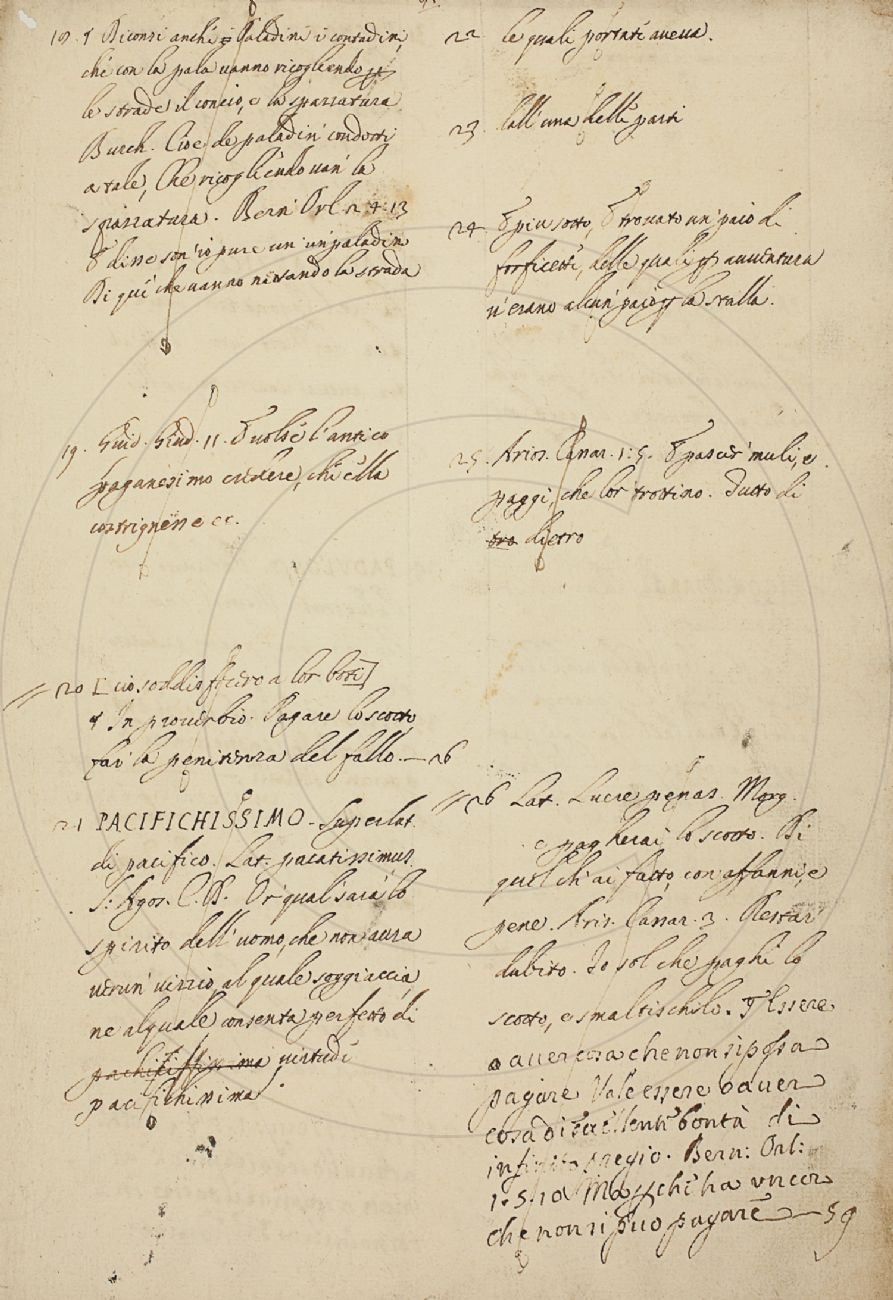 19. ¶ Diconsi anchè Paladini i contadini,
chè con la pala vanno ricogliendo
le strade il concio, e la spazzatura
Burch. Cioè de paladin' condotti
a tale, Che ricogliendo van' la
spazzatura. Bern. Orl. 2. 4. 13
E disse son' io pure un' un' paladin
Di quì che vanno nettando la strada
19. Guid. Giud. 11. E volse l'antico
paganesimo credere, chè ella
costrignesse ec.
20 [cio soddisfecero a lor boti]
¶ In proverbio. Pagare lo scotto
far la penitenza del fallo.— 26
21 PACIFICHISSIMO. Superlat.
di pacifico. Lat. pacatissimus
S. Agos. C. D. Or' qual' sarà lo
spirito dell' uomo, che non avra
verun' vizio, al quale soggiaccia,
ne al quale consenta perfetto di
virtudi
pacifichissima.
22 le quali portate aveva.
23. dall' una delle parti
24. E piu sotto, E trovato un' paio di
forficette, delle quali avventura
n' erano alcun' paio la stalla.
25. Arios. Cassar. 1. 5. E pascer' muli, e
paggi, che lor trottino. Tutto di
tro dietro
26 Lat. Luere penas. Morg.
e pagherai lo scotto. Di
quel ch' ai fatto, con affanni, e
pene. Aris. Cassar. 3. Restar
dubito. Io sol che paghi lo
scotto, e smaltischilo. ¶ Essere
o aver cosa che non si possa
pagare Vale essere o aver
cosa di eccellente bontà di
infinito pregio. Bern: Orl:
1. 5. 10 Ma perchè ha un cor
che non si può pagare— 59